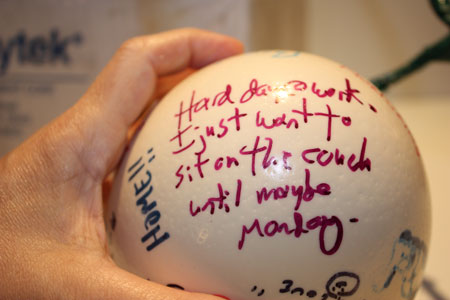 ytek®
Hard day a work.
I just want to
sit on the couch
until maybe
Monday-
HOME!!